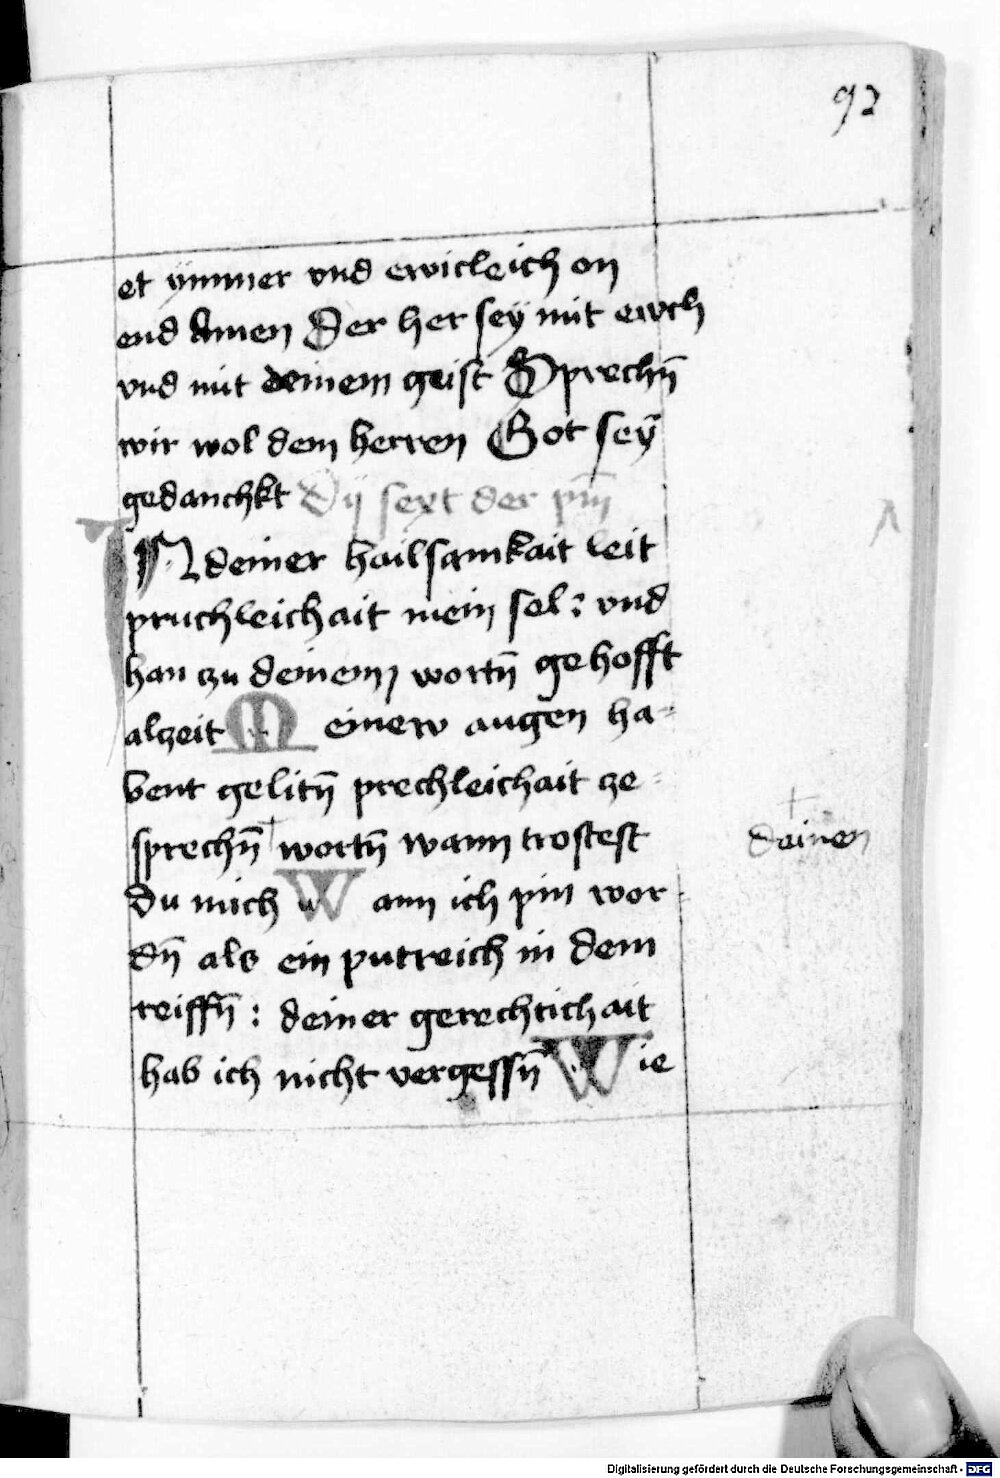 92
et ymmer vnd ewicleich on
end Amen Der her sey mit ewch
vnd mit deinem geist Sprechn̄
wir wol dem herren Got seÿ
gedanchkt Dÿ sext der pm̄
IN deiner hailsamkait leit
pruchleichait mein sel : vnd
han zu deinem wortn̄ gehofft
alzeit Meinew augen ha-
bent gelitn̄ prechleichait ze-
sprechn̄ + wortn̄ wann trostest
+ deinen
du mich Wann ich pin wor-
dn̄ als ein putreich in dem
reiffn̄ : deiner gerechtichait
hab ich nicht vergessn̄ Wie
Digitalisierung gefördert durch die Deutsche Forschungsgemeinschaft - DFG